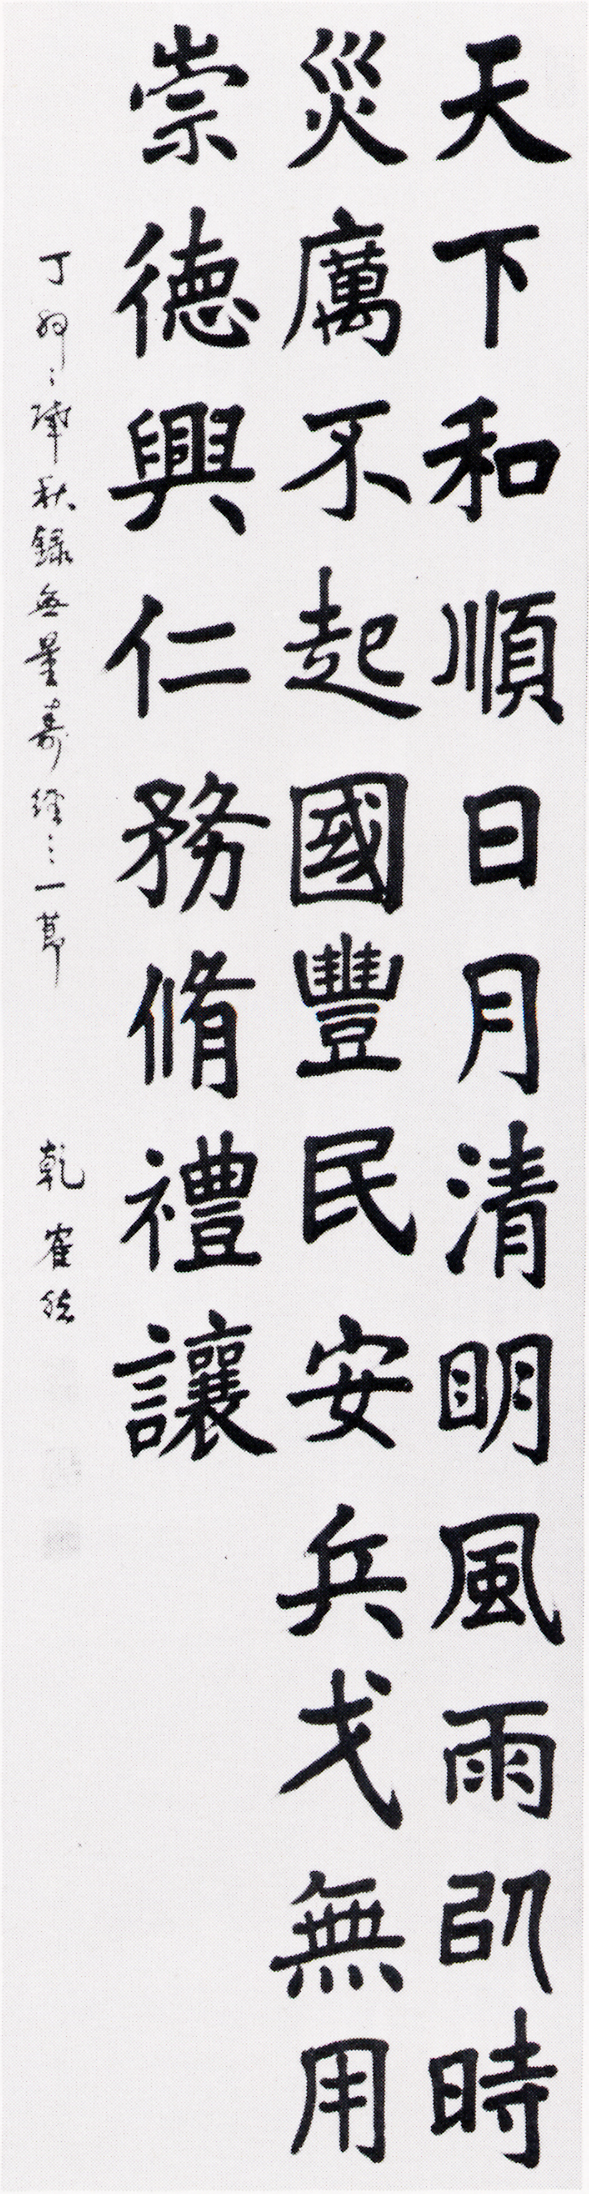 天下和順日月清明風雨以時
災厲不起國豐民安兵戈無用
崇德興仁務脩禮讓
丁卯之秋録無量壽經之一節
乾